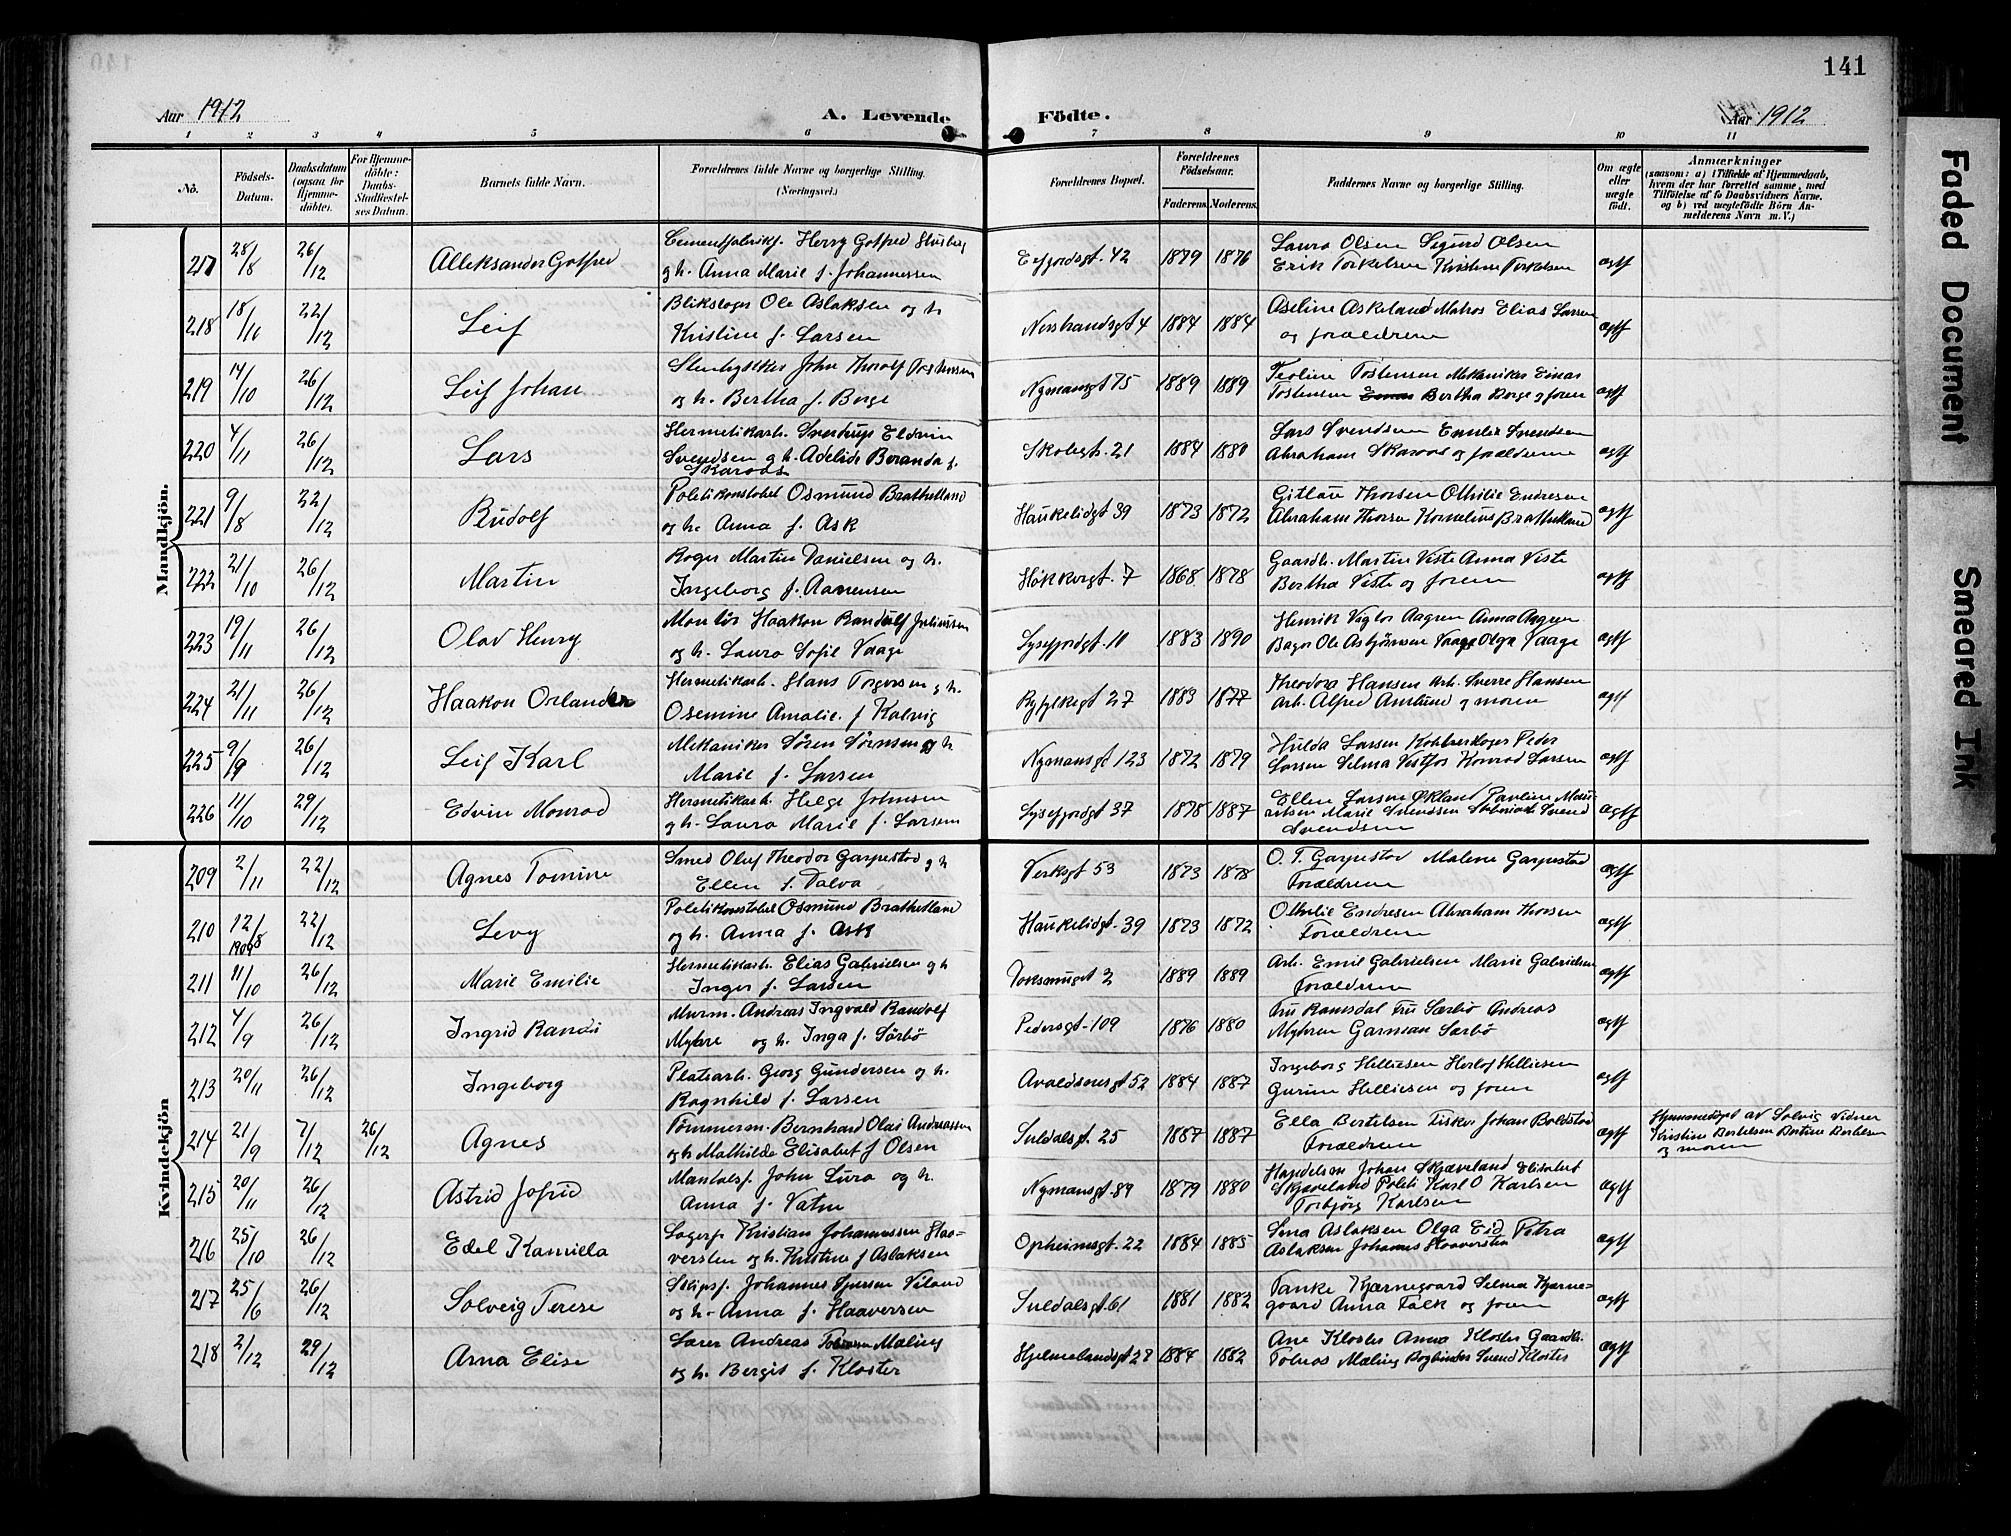 141
Aar 1912
A. Levende
Födte.
Aar 1912
1 2 3 4 5 6 7 8 9 10 11
No.
Födsels-Datum.
Daabsdatum (ogsaa for Hjemmedöbte).
For Hjemmedöbte: Daabs-Stadfæstelses Datum.
Barnets fulde Navn.
Forældrenes fulde Navne og borgerlige Stilling. (Næringsvei.)
Forældrenes Bopæl.
Forældrenes Födselsaar.
Faderens. Moderens.
Faddernes Navne og borgerlige Stilling.
Om ægte eller uægte födt.
Anmærkninger
(saasom: a) i Tilfælde af Hjemmedaab, hvem der har forrettet samme, med Tilföielse af to Daabsvidners Navne, og b) ved uægtefödte Börn Anmelderens Navn m. V.)
Mandkjön.
217 28/8 26/12 Alleksander Gotfred
Cementfabrikf. Herry Gotfred
og h. Anna Marie f. Johannessen
Erfjordsgt. 42 1879 1876
Laura Olsen Sigurd Olsen
Erik Torkelsen Kristine Torkelsen ægtf
218 18/10 22/12 Leif
Blikslager Ole Aslaksen og h
Kristine f. Larsen
4 1884 1884
Aseline Askeland Matros Elias Larsen
og forældrene ægtf
219 14/10 26/12 Leif Johan
Stenhugger John Thorolf Tostensen
og h. Bertha f. Berge
Nymansgt 75 1889 1889
Teoline Tostensen Mekaniker Einar
Tostensen Bertha Berge og foren ægtf
220 4/11 26/12 Lars
Hermetikarb. Sverdrup Eldvin
Svendsen og h. Adelide Beranda f.
Skaraas
Skolegt. 21 1884 1880
Lars Svendsen Emilie Svendsen
Abraham Skaraas og forældrene ægtf
221 9/8 22/12 Rudolf
Politikonstabel Osmund Brathetland
og h. Anna f. Ask
Haukelidgt 39 1873 1872
Gitlau Thorsen Othilie Endresen
Abraham Thorsen Kornelius Brathetland ægtf
222 21/10 26/12 Martin
Roger Martin Danielsen og h.
Ingeborg f. Aanensen
7 1868 1878
Gaardb. Martin Viste Anna Viste
Bertha Viste og foren ægtf
223 19/11 26/12 Olav Henry
Montör Haakon Randulf Juliussen
og h. Laura Sofie Vaage
Lysefjordgt. 11 1883 1890
Henrik Viglor Aagren Anna Aagren
Bager Ole Asbjörnsen Vaage Olga Vaage ægtf
224 21/11 26/12 Haakon Orlander
Hermetikarb. Hans Torgersen og h.
Osemine Amalie f Kalvig
Ryfylkegt 27 1883 1877
Theodora Hansen Arb. Sverre Hansen
Arb. Alfred Amlund og moren ægtf
225 9/9 26/12 Leif Karl
Mekaniker Sören Sörensen og h
Marie f. Larsen
Nymansgt 123 1872 1879
Hulda Larsen Peder
Larsen Selma Vestfos Konrad Larsen ægtf
226 11/10 29/12 Edvin Monrad
Hermetikarb. Helge Johnsen
og h. Laura Marie f. Larsen
Lysefjordgt 37 1878 1887
Ellen Larsen Økland Pauline Mauritsen Marie Svendsen Svend
Svendsen ægtf
Kvindekjön
209 2/11 22/12 Agnes Tomine
Smed Oluf Theodor Garpestad og h
Ellen f. Dalva
Verksgt 53 1873 1878
O. T. Garpestad Malene Garpestad
Forældrene ægtf
210 12/8 1908 22/12 Levy
Politikonstabel Osmund Brathetland
og h. Anna f. Ask
Haukelidgt. 39 1873 1872
Othilie Endresen Abraham Thorsen
Forældrene ægtf
211 11/10 26/12 Marie Emilie
Hermetikarb. Elias Gabrielsen og h
Inger f. Larsen
2 1889 1889
Arb. Emil Gabrielsen Marie Gabrielsen
Forældrene ægtf
212 4/9 26/12 Ingrid Randi
Murm. Andreas Ingvald Randolf
Myhre og h. Inga f. Sörbö
Pedersgt. 109 1876 1880
Fru Ramsdal Fru Sørbö Andreas
Myhren Garman Sørbö ægtf
213 20/11 26/12 Ingeborg
Platearb. Georg Gundersen og h.
Ragnhild f. Larsen
Avaldsnesgt 52 1884 1887
Ingeborg Helliesen Herlof Helliesen
Gurine Helliesen og foren ægtf
214 21/9 7/12 26/12 Agnes
Tömmerm. Bernhard Olai Andreassen
og h Mathilde Elisabet f Olsen
Suldalsgt. 25 1887 1887
Ella Bertelsen Fisker Johan Boldstad
Forældrene ægtf
Hjemmedöpt av Solvig Vidner
Kristine Bertelsen Bertine Bertelsen
og moren
215 20/11 26/12 Astrid Jofrid
Mandalsf. John Lura og h.
Anna f. Vatne
Nymansgt. 89 1879 1880
Handelsm Johan Skjæveland Elisabet
Skjæveland Politi Karl O Karlsen
Torbjörg Karlsen ægtf
216 25/10 26/12 Edel Kamilla
Lagerf Kristian Johannessen Haaversten og h. Kristine f Aslaksen
Opheimsgt. 22 1884 1885
Sina Aslaksen Olga Eid Petra
Aslaksen Johannes Haaversten ægtf
217 25/6 26/12 Solveig Terese
Skipsf. Johannes Viland
og h. Anna f. Haaversen
Suldalsgt 61 1881 1882
Tanke Kjærnegaard Selma Kjærnegaard Anna Falk og foren ægtf
218 2/12 29/12 Arna Elise
Lærer Andreas Maling
og h. Bergit f. Kloster
Hjelmelandsgt 28 1884 1882
Ane Kloster Anna Kloster Gaardb.
Tobias Maling Bogbinder Svend Kloster ægtf
Faded Document
Smeared Ink